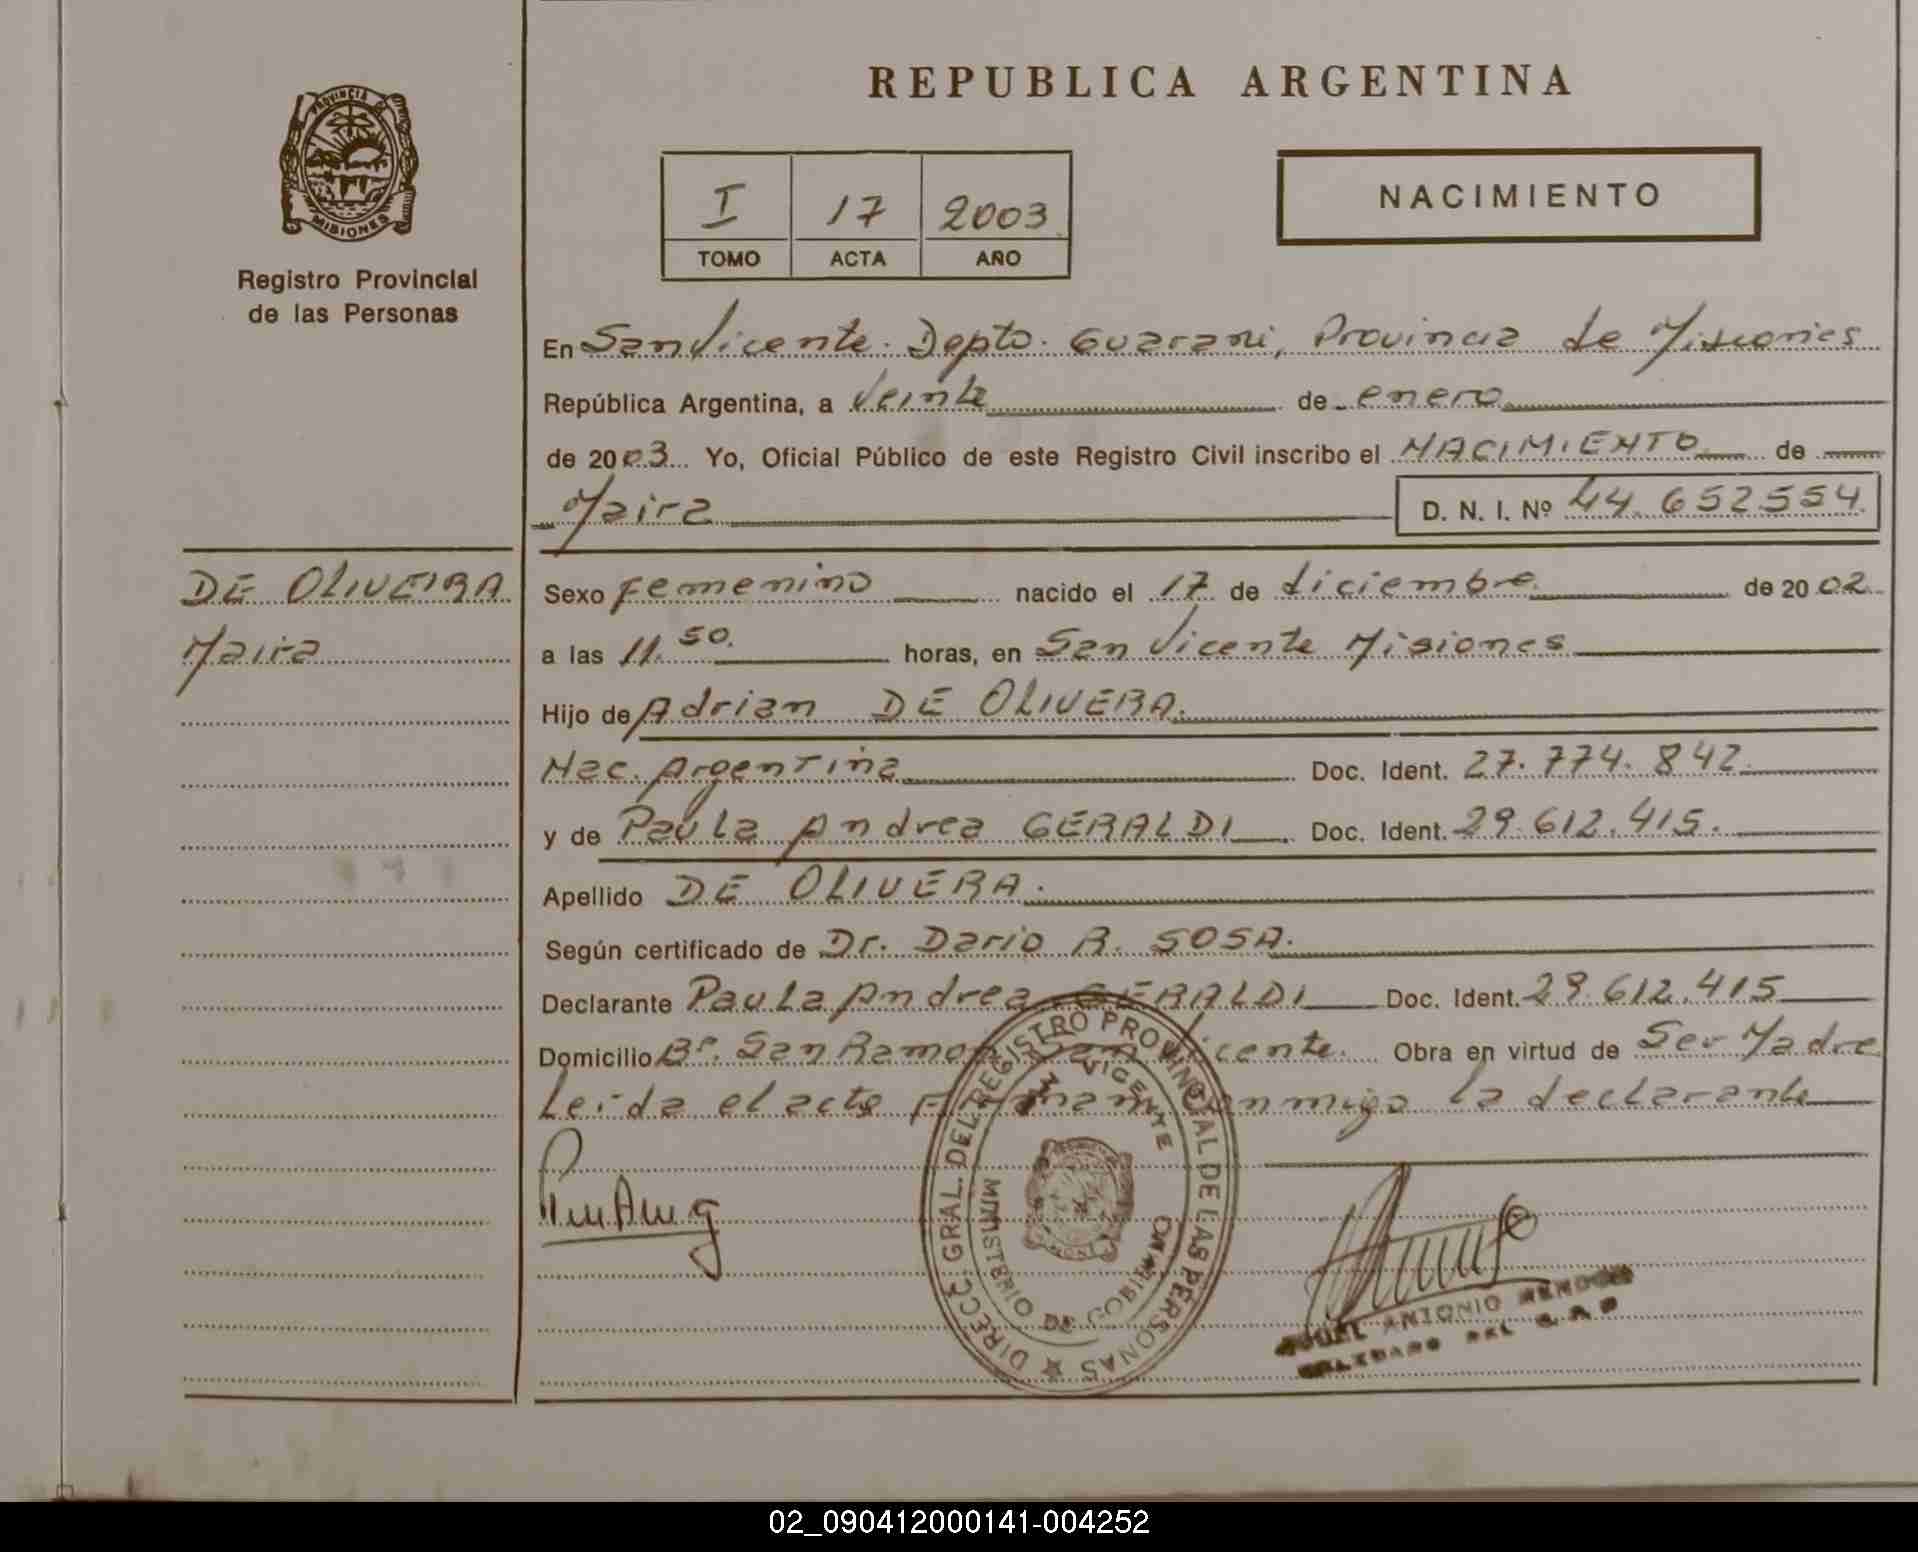 REPUBLICA ARGENTINA
PROVINCIA DE
MISIONES
Registro Provincial
de las Personas
I 17 2003
TOMO ACTA AÑO
NACIMIENTO
En San Vicente. Depto. Guarani, Provincia de Misiones
República Argentina, a Veinte de enero
de 2003 Yo, Oficial Público de este Registro Civil inscribo el NACIMIENTO de
Maira D. N. I. Nº 44.652554
DE OLIVEIRA
Maira
Sexo Femenino nacido el 17 de diciembre de 2002
a las 11.50. horas, en San Vicente Misiones
Hijo de Adrian DE OLIVERA.
Nac. Argentina Doc. Ident. 27.774.842.
y de Paula Andrea GERALDI Doc. Ident. 29.612.415.
Apellido DE OLIVERA.
Según certificado de Dr. Dario R. SOSA.
Declarante Paula Andrea GERALDI Doc. Ident. 29.612.415
Domicilio Bº. San Ramon San Vicente. Obra en virtud de Ser Madre
Leida el acta Firman conmigo la declarante
DIRECC. GRAL. DEL REGISTRO PROVINCIAL DE LAS PERSONAS
MINISTERIO DE GOBIERNO
VICENTE
ANTONIO
02_090412000141-004252